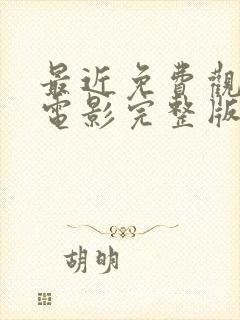 最近免費觀
電影完整版
胡明